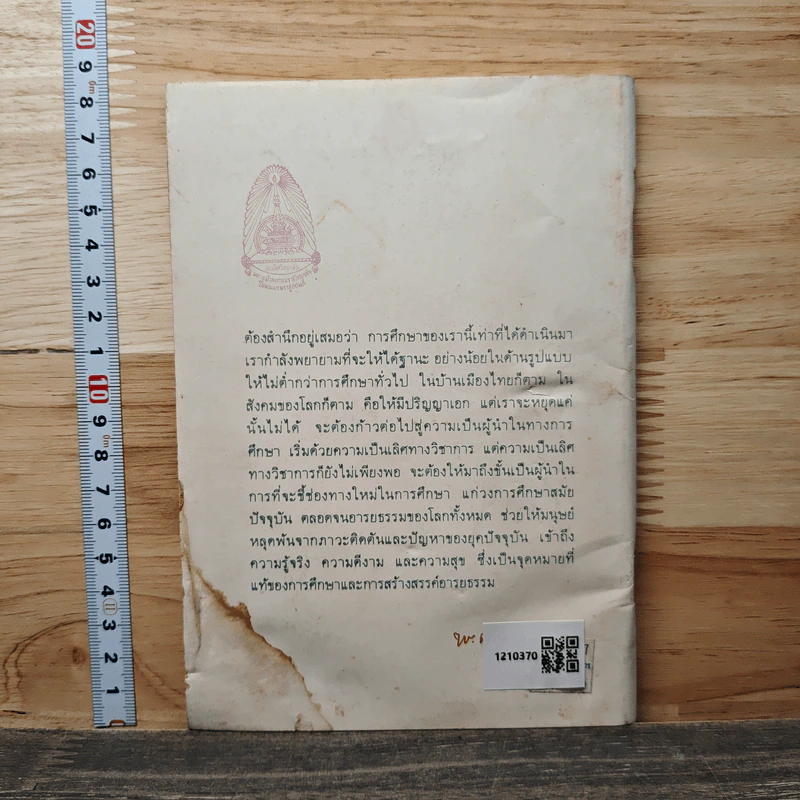 ต้องสำนึกอยู่เสมอว่า การศึกษาของเรานี้เท่าที่ได้ดำเนินมา
เรากำลังพยายามที่จะให้ได้ฐานะ อย่างน้อยในด้านรูปแบบ
ให้ไม่ต่ำกว่าการศึกษาทั่วไป ในบ้านเมืองไทยก็ตาม ใน
สังคมของโลกก็ตาม คือให้มีปริญญาเอก แต่เราจะหยุดแค่
นั้นไม่ได้ จะต้องก้าวต่อไปสู่ความเป็นผู้นำในทางการ
ศึกษา เริ่มด้วยความเป็นเลิศทางวิชาการ แต่ความเป็นเลิศ
ทางวิชาการก็ยังไม่เพียงพอ จะต้องให้มาถึงขั้นเป็นผู้นำใน
การที่จะชี้ช่องทางใหม่ในการศึกษา แก่วงการศึกษาสมัย
ปัจจุบัน ตลอดจนอารยธรรมของโลกทั้งหมด ช่วยให้มนุษย์
หลุดพ้นจากภาวะติดตันและปัญหาของยุคปัจจุบัน เข้าถึง
ความรู้จริง ความดีงาม และความสุข ซึ่งเป็นจุดหมายที่
แท้ของการศึกษาและการสร้างสรรค์อารยธรรม
1210370
20
9
8
7
6
5
4
3
2
1
10
9
8
7
6
5
4
3
2
1